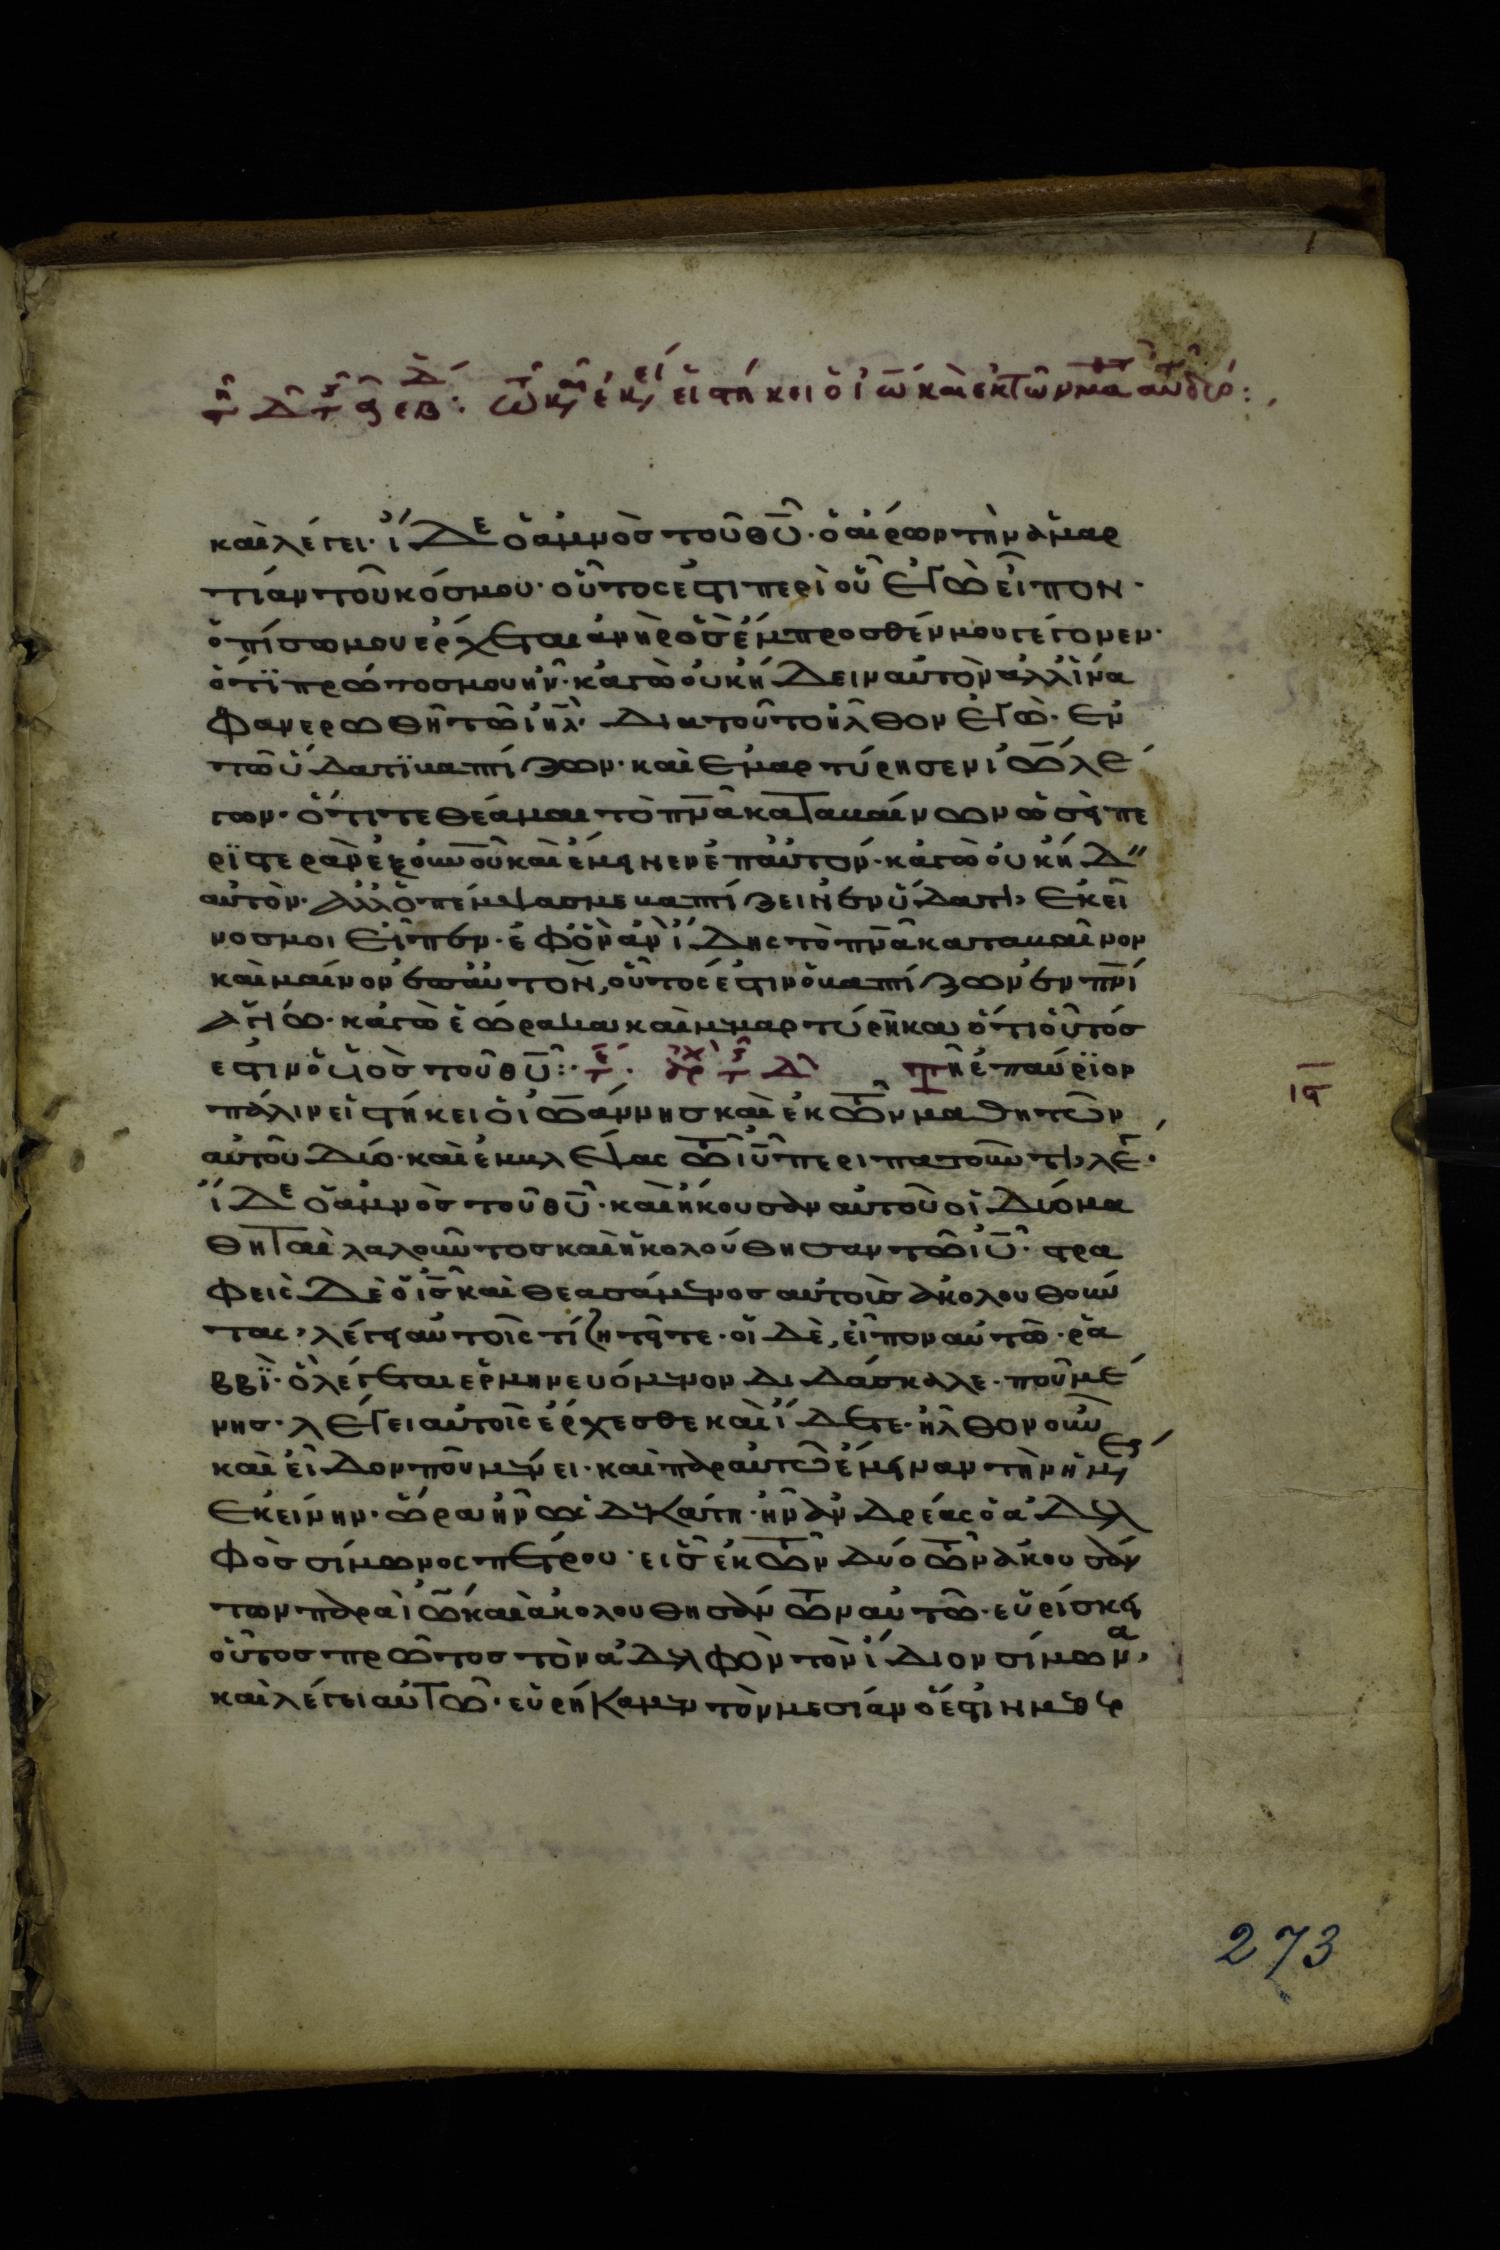 τῇ δ τῆς ε ἑβδ. τῷ καιρῷ ἐκείνῳ εἱστήκει ὁ ἰω καὶ ἐκ τῶν μαθητῶν αὐτοῦ δύο:
καὶ λέγει· ἴδε ὁ ἀμνὸς τοῦ θυ· ὁ αἴρων τὴν ἁμαρ
τίαν τοῦ κόσμου· οὗτος ἐστι περὶ οὗ ἐγὼ εἶπον·
ὀπίσω μου ἔρχεται ἀνὴρ ὃς ἔμπροσθέν μου γέγονεν·
ὅτι πρῶτος μου ἦν· κἀγὼ οὐκ ᾔδειν αὐτὸν ἀλλ ἵνα
φανερωθῇ τῷ ιηλ· διατοῦτο ἦλθον ἐγὼ· ἐν
τῷ ὕδατι βαπτίζων· καὶ ἐμαρτύρησεν ἰω λέ
γων· ὅτι τεθέαμαι τὸ πνα καταβαίνων ὡσεὶ πε
ριστερὰν ἐξ οὐνοῦ καὶ ἔμεινεν ἐπ αὐτόν· κἀγὼ οὐκ ᾔδ
αὐτὸν· ἀλλ ὁ πέμψας με βαπτίζειν ἐν ὕδατι, ἐκεῖ
νος μοι εἶπεν· ἐφ ὃν ἂν ἴδης τὸ πνα καταβαῖνον
καὶ μαίνον ἐπ αὐτὸν, οὗτος ἐστιν ὁ βαπτίζων ἐν πνι
ἁγίω· κἀγὼ ἑώρακα καὶ μεμαρτύρηκα ὅτι οὗτός
ἐστιν ὁ υἱὸς τοῦ θυ: τέ. ἀρχ τῆς δ Τῇ ἐπαύριον
ις
πάλιν εἱστήκει ὁ ἰωάννης καὶ ἐκ τῶν μαθητῶν
αὐτοῦ δύο· καὶ ἐμβλέψας τῷ ιυ περιπατοῦντι, λέγ·
ἴδε ὁ ἀμνὸς τοῦ θυ· καὶ ἤκουσαν αὐτοῦ οἱ δύο μα
θηταὶ λαλοῦντος καὶ ἠκολούθησαν τῷ ιυ· στρα
φεὶς δὲ ὁ ις καὶ θεασάμενος αὐτοὺς ἀκολουθοῦν
τας, λέγει αὐτοῖς τί ζητεῖτε· οἱ δὲ, εἶπον αὐτῷ· ῥα
ββὶ· ὃ λέγεται ἑρμηνευόμενον διδάσκαλε· ποῦ μέ
νης· λέγει αὐτοῖς ἔρχεσθε καὶ ἴδετε· ἦλθον οὖν
καὶ εἶδον ποῦ μένει· καὶ παρ αὐτῷ ἔμειναν τὴν ἡμερ
ἐκείνην· ὥρα ἦν ὡς δεκάτη· ἦν ἀνδρέας ὁ ἀδελ
φὸς σίμωνος πέτρου· εἷς ἐκ τῶν δύο τῶν ἀκουσάν
των παρὰ ἰω καὶ ἀκολουθησάντων αὐτῷ· εὑρίσκει
οὗτος πρῶτος τὸν ἀδελφὸν τὸν ἴδιον σίμωνα,
καὶ λέγει αὐτῷ· εὑρήκαμεν τὸν μεσίαν ὅ ἐστι μεθερ
273